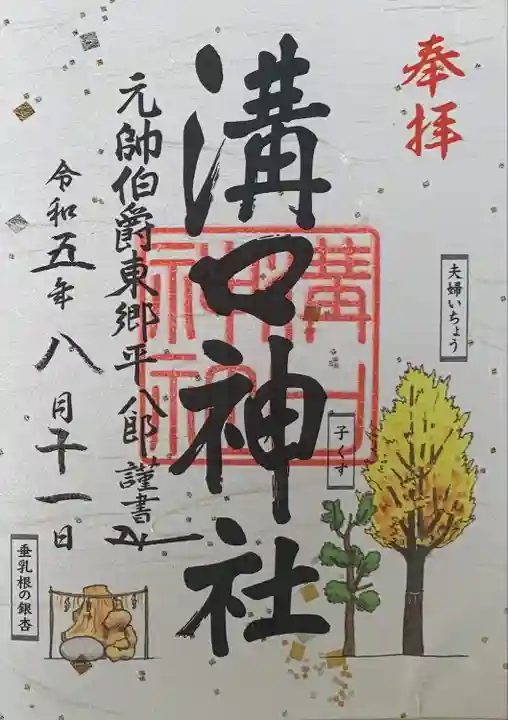 奉拝
夫婦いちょう
子くす
溝口神社
溝口神社
元帥伯爵東郷平八郎謹書
令和五年八月十一日
垂乳根の銀杏